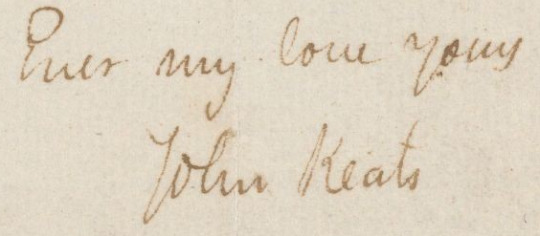 Ever my love yours
John Keats